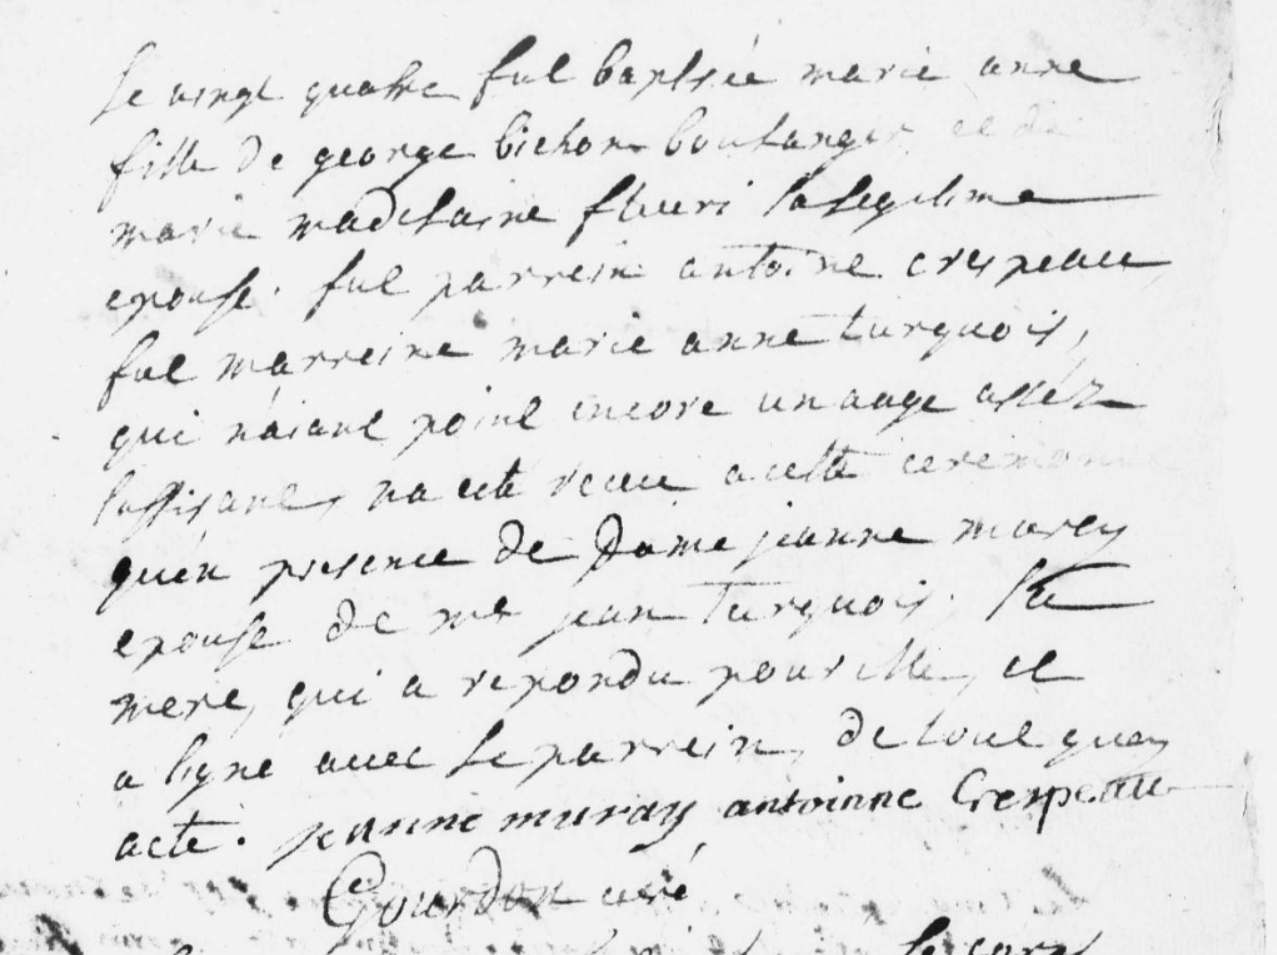 Le vingt quatre fut baptisée marie anne
fille de george bichon boulanger et de
marie madelaine fleuri sa legitime
epouse. fut parrein antoine crespeau
fut marreine marie anne turquois,
qui n'aiant point encore un aage assez
suffisant, na eté receu a cette ceremonie
qu'en presence de Dame jeanne marey
epouse de me jean Turquois. Sa
mere, qui a repondu pour elle, et
a signé avec le parrein, de tout quoy
acte. jeanne muray antoinne Crespeau
Gourdon curé